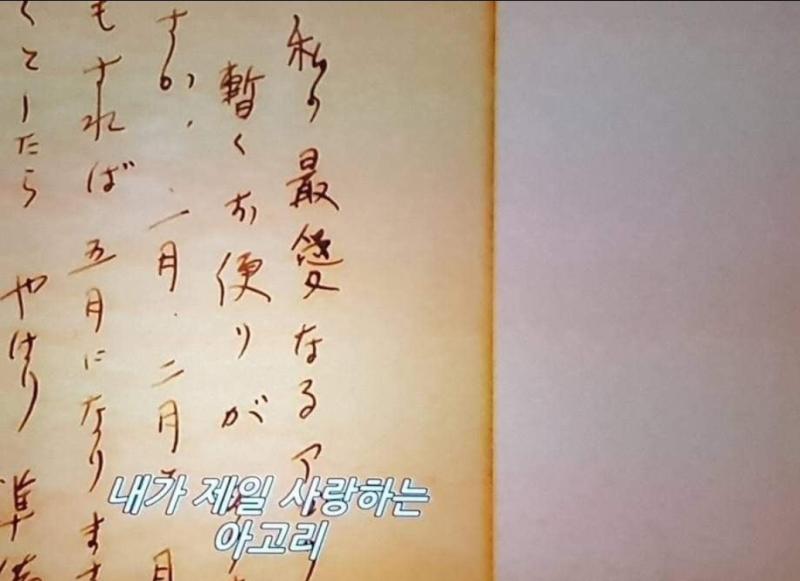 私の最愛なるア
暫くお便りが
すが、一月・二月
もすれば五月になります
くとしたら やはり 準備
내가 제일 사랑하는
아고리